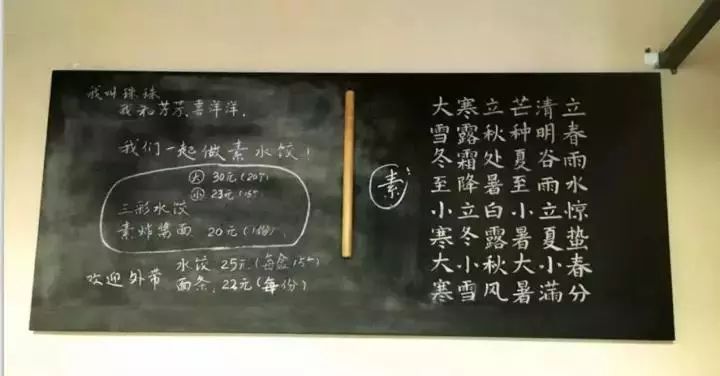 我叫珠珠
我和芳芬、喜洋洋.
我们一起做素水饺!
大 30元(20个)
小 23元(15个)
三彩水饺
素炸酱面 20元(1份)
水饺 25元(每盒15个)
欢迎外带 面条 22元(每份)
素
立春雨水惊蛰春分
清明谷雨立夏小满
芒种夏至小暑大暑
立秋处暑白露秋风
寒露霜降立冬小雪
大雪冬至小寒大寒